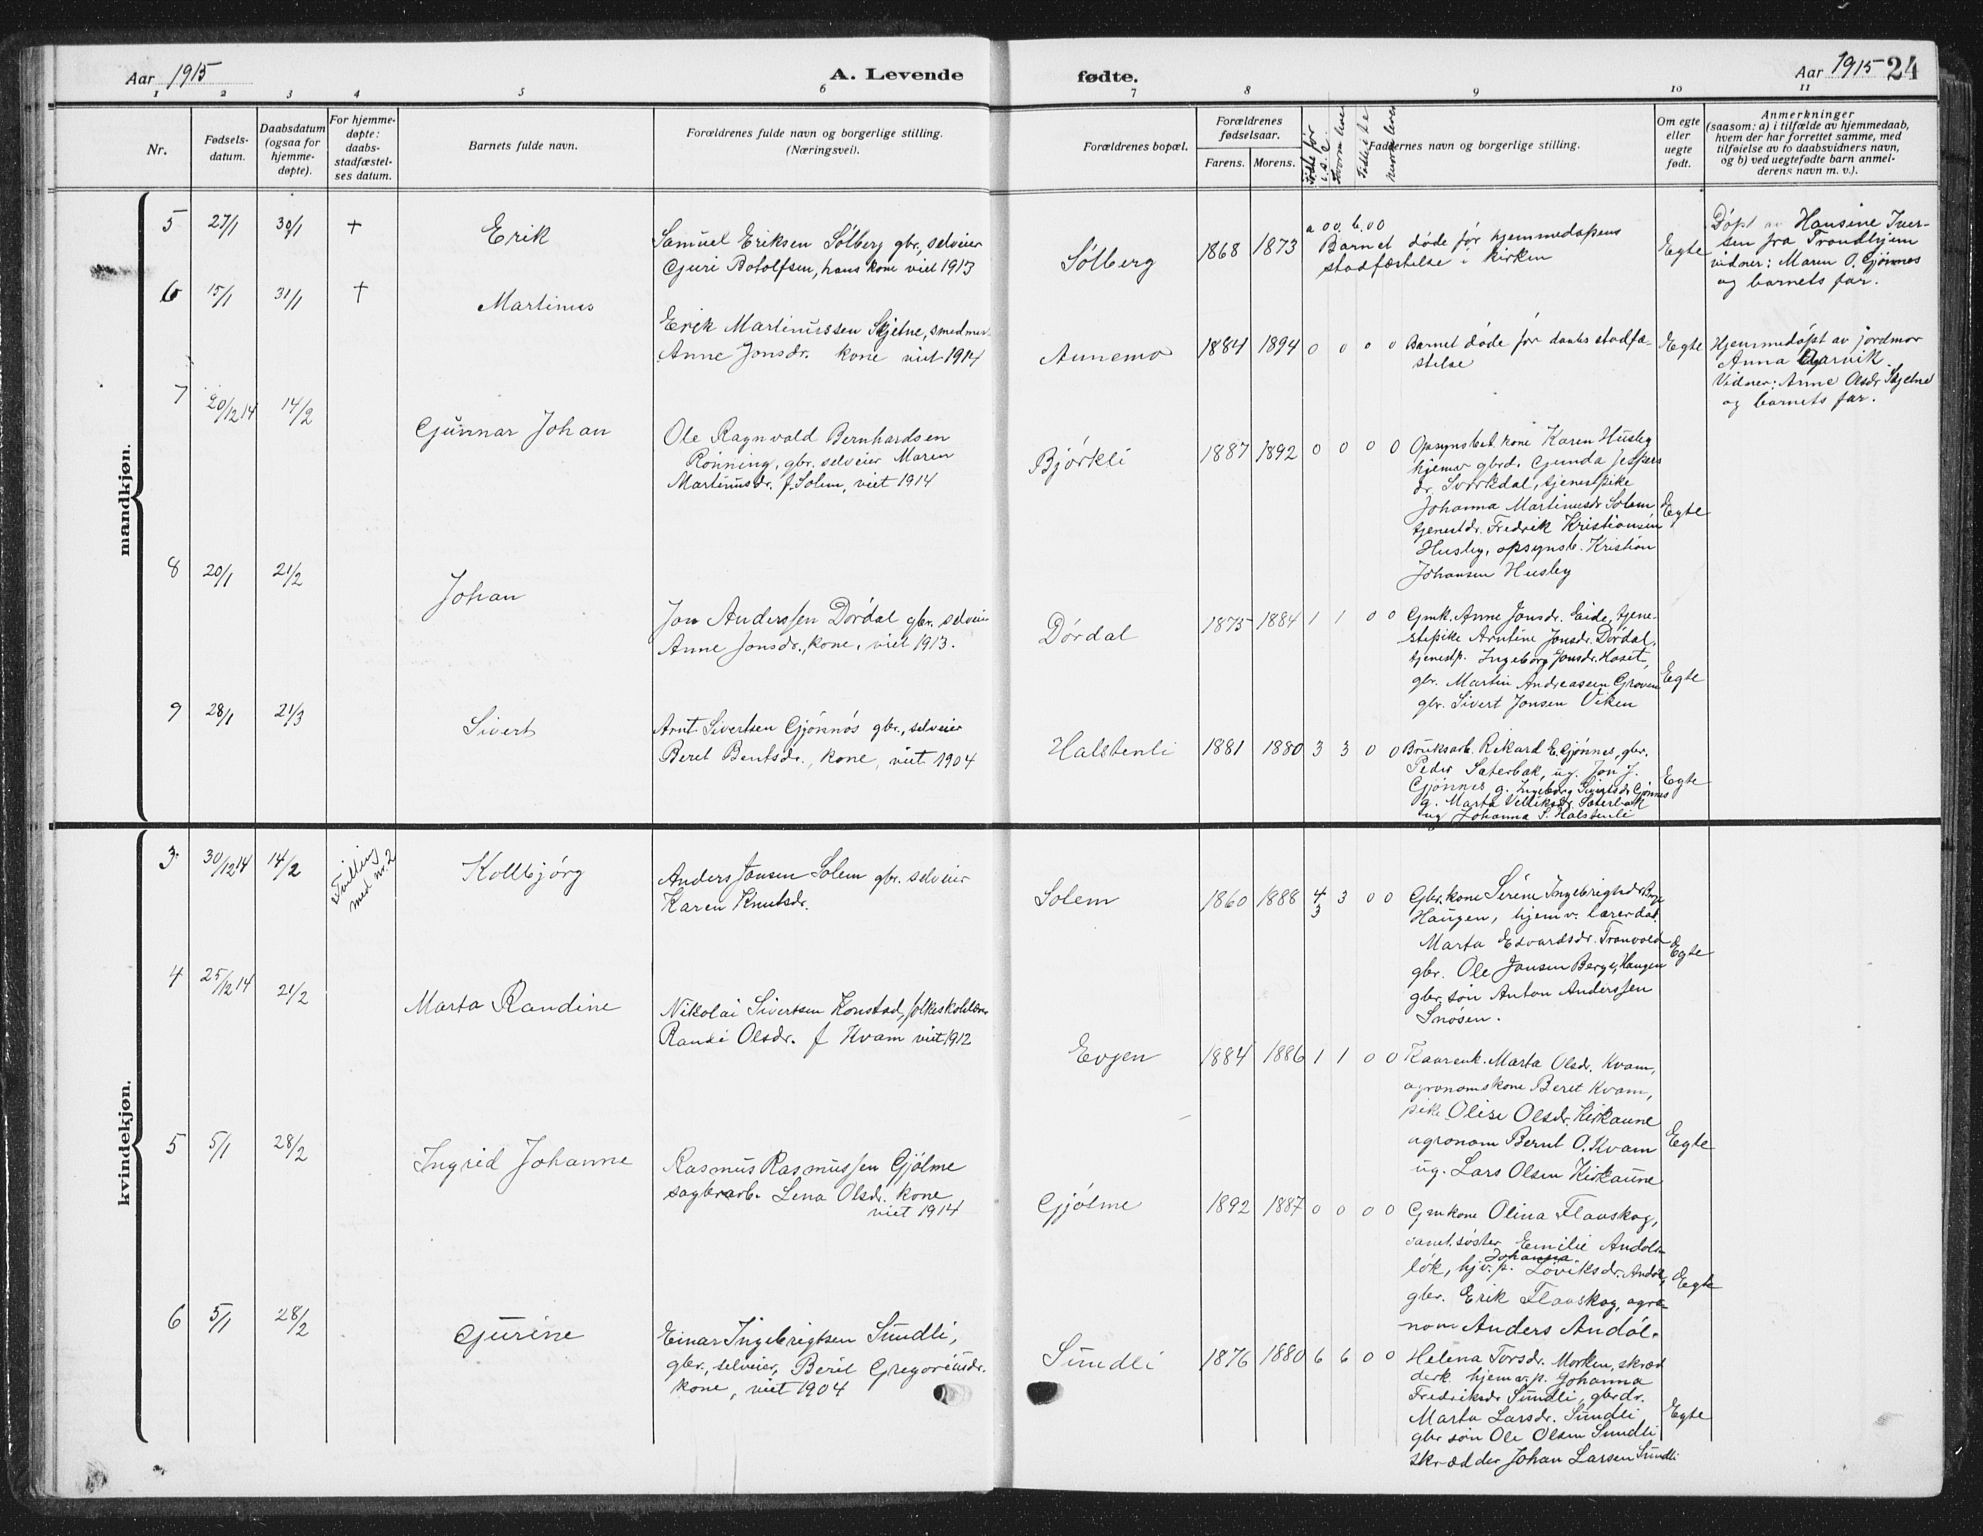 Aar 1915
A. Levende
fødte.
Aar 1915
24
1 2 3 4 5 6 7 8 9 10 11
Nr.
Fødsels-
datum.
Daabsdatum
(ogsaa for
hjemme-
døpte).
For hjemme-
døpte:
daabs-
stadfæstel-
ses datum.
Barnets fulde navn.
Forældrenes fulde navn og borgerlige stilling.
(Næringsvei).
Forældrenes bopæl.
Forældrenes
fødselsaar.
Farens. Morens.
Faddernes navn og borgerlige stilling.
Om egte
eller
uegte
født.
Anmerkninger
(saasom: a) i tilfælde av hjemmedaab,
hvem der har forrettet samme, med
tilføielse av to daabsvidners navn,
og b) ved uegtefødte barn anmel-
derens navn m. v.).
mandkjøn.
5 27/1 30/1 + Erik
Samuel Eriksen Sølberg gbr. selveier
Guri Botolfsen, hans kone viet 1913
Sølberg 1868 1873
a 00. b. 00
Barnet døde før hjemmedaapens
stadfæstelse i kirken
Egte
Døpt av Hansine Iver-
sen fra Trondhjem
vidner: Maren O. Gjønnes
og barnets far.
6 15/1 31/1 + Martinus
Erik Martinussen Skjetne, smedm.
Anne Jonsdr. kone viet 1914
Annemo 1884 1894 0 0 0 0
Barnet døde før daabs stadfæ-
stelse
Egte
Hjemmedøpt av jordmor
Anna Garvik
Vidner: Anne Olsdr. Skjetne
og barnets far.
7 20/12 14 14/2 Gunnar Johan
Ole Ragnvald Bernhardsen
Rønning, gbr. selveier Maren
Martinusdr. f. Solem, viet 1914
Bjørkli 1887 1892 0 0 0 0
Opsynsbet. kone Karen Husby
hjemv gbrd. Gunda Jespers
dr. Svorkdal, tjenestpike
Johanna Martinusdr Solem
tjenestdr. Fredrik Kristiansen
Husby, opsynsb. Kristian
Johansen Husby
Egte
8 20/1 21/2 Johan
Jon Anderssen Dørdal gbr. selveier
Anne Jonsdr., kone, viet 1913.
Dørdal 1875 1884 1 1 0 0
Gmk. Anne Jonsdr. Eide, tjene-
stepike Arntine Jonsdr. Dørdal,
tjenestp. Ingeborg Jonsdr. Hoset,
gbr. Martin Andreassen Groven
gbr. Sivert Jonsen Viken
Egte
9 28/1 21/3 Sivert
Arnt Sivertsen Gjønnes gbr., selveier
Beret Bentsdr., kone, viet 1904
Halstenli 1881 1880 3 3 0 0
Bruksarb. Rikard E. Gjønnes, gbr.
Peder Sæterbak, ug. Jon J.
Gjønnes g. Ingeborg Sivertsdr Gjønnes
g. Marta Sæterbak
ug Johanna S. Halstenli
Egte
kvindekjøn.
3 30/12 14 14/2
Tvilling
med nr. 2
Kollbjørg
Anders Jonsen Solem gbr. selveier
Karen Knutsdr.
Solem 1860 1888 4 3 0 0
3
Gbr. kone Serine Ingebrigtsdr Berge
Haugen, hjemv. lærerdat.
Marta Edvardsdr. Tranvold
gbr. Ole Jonsen Berge, Haugen
gbr. søn Anton Anderssen
Snøsen.
Egte
4 25/12 14 21/2 Marta Randine
Nikolai Sivertsen Konstad, folkeskolelærer
Randi Olsdr. f Kvam viet 1912
Evjen 1884 1886 1 1 0 0
Kaarenk. Marta Olsdr. Kvam,
agronomskone Beret Kvam,
pike Olise Olsdr. Kirkaune
agronom Bernt O. Kvam
ug. Lars Olsen Kirkaune
Egte
5 5/1 28/2 Ingrid Johanne
Rasmus Rasmussen Gjølme
sagbrarb. Lena Olsdr. kone
viet 1914
Gjølme 1892 1887 0 0 0 0
Gmkone Olina Flaaskog,
sanit. søster Emilie Andøls-
løk, hjv. p. Johanna Løviksdr. Andøl,
gbr. Erik Flaaskog, agro-
nom Anders Andøl.
Egte
6 5/1 28/2 Gurine
Einar Ingebrigtsen Sundli,
gbr., selveier, Beret Gregoriusdr.
kone, viet 1904
Sundli 1876 1880 6 6 0 0
Helena Torsdr. Morken, skræd
derk hjemv. p. Johanna
Fredriksdr Sundli, gbrdr.
Marta Larsdr. Sundli
gbr søn Ole Olsen Sundli
skrædder Johan Larsen Sundli
Egte